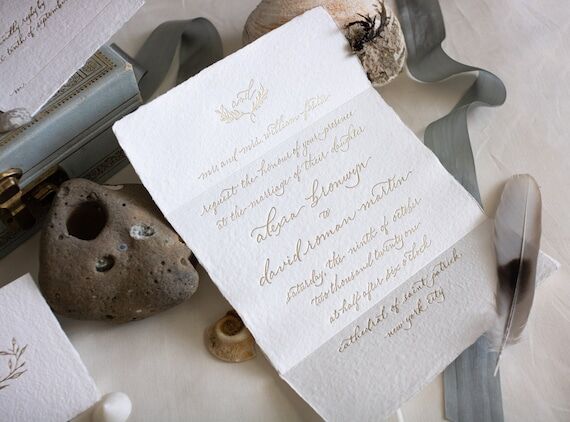 reply by
tenth of september
m
and
mr and mrs william
request the honour of your presence
at the marriage of their daughter
alexia bronwyn
to
david roman martin
saturday, the ninth of october
two thousand twenty one
at half after six o'clock
cathedral of saint patrick
new york city